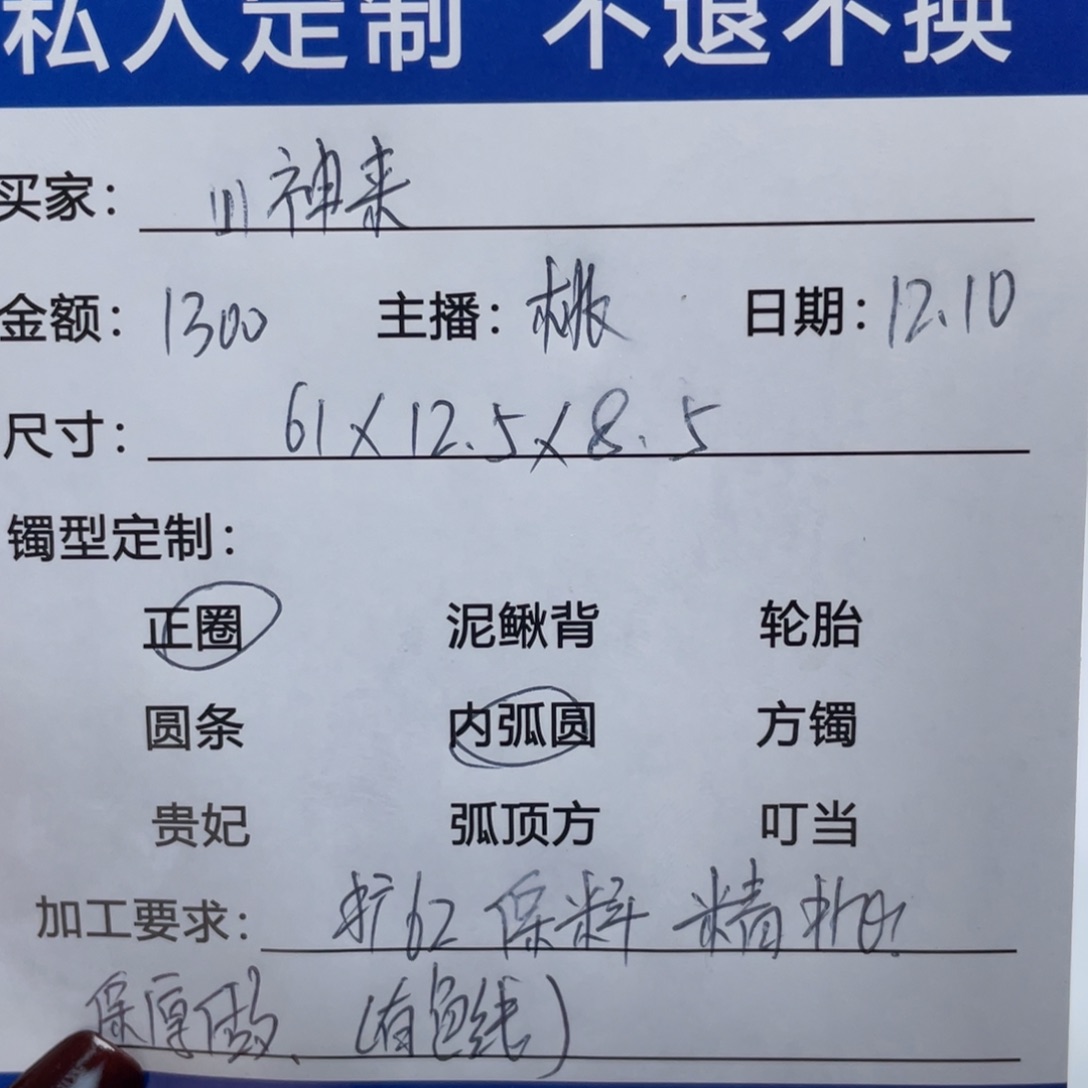 私人定制 不退不换
买家: 川神来
金额: 1300 主播: 桃 日期: 12.10
尺寸: 61×12.5×8.5
镯型定制:
正圈 泥鳅背 轮胎
圆条 内弧圆 方镯
贵妃 弧顶方 叮当
加工要求: 扩62 保料 精抛
保厚做、(有色线)